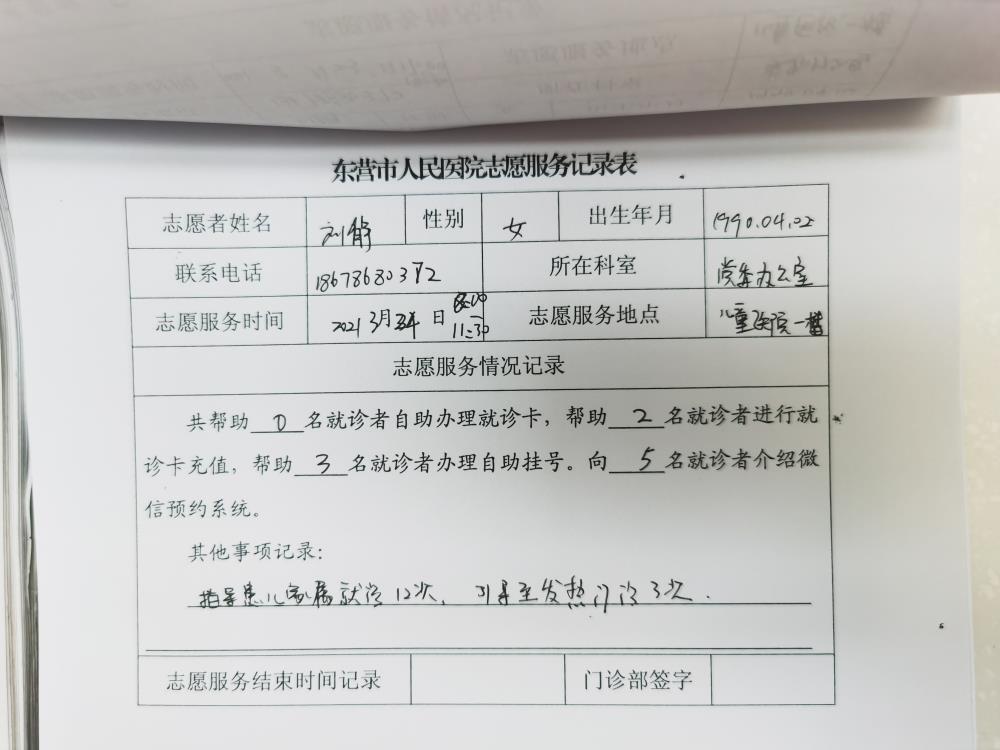 东营市人民医院志愿服务记录表
志愿者姓名 刘静 性别 女 出生年月 1990.04.02
联系电话 18678680372 所在科室 党委办公室
志愿服务时间 2021 3月 日 8:00 11:30 志愿服务地点 儿童医院一楼
志愿服务情况记录
共帮助 0 名就诊者自助办理就诊卡，帮助 2 名就诊者进行就
诊卡充值，帮助 3 名就诊者办理自助挂号。向 5 名就诊者介绍微
信预约系统。
其他事项记录：
指导患儿家属就诊12次，引导至发热门诊3次.
志愿服务结束时间记录 门诊部签字